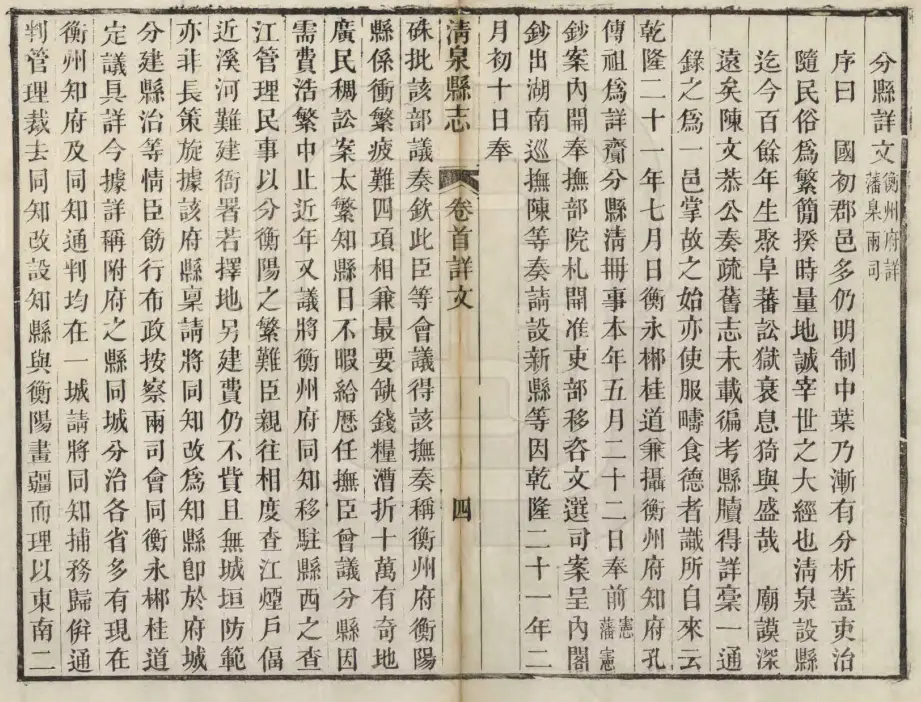 分縣詳文衡州府詳藩臬兩司
序曰　國初郡邑多仍明制中葉乃漸有分析蓋吏治
隨民俗爲繁簡揆時量地誠宰世之大經也淸泉設縣
迄今百餘年生聚阜蕃訟獄衰息猗與盛哉　廟謨深
遠矣陳文恭公奏疏舊志未載徧考縣牘得詳稾一通
錄之爲一邑掌故之始亦使服疇食德者識所自來云
乾隆二十一年七月日衡永郴桂道兼攝衡州府知府孔
傳祖爲詳齎分縣淸冊事本年五月二十二日奉前憲藩憲
鈔案內開奉撫部院札開准吏部移咨文選司案呈內閣
鈔出湖南巡撫陳等奏請設新縣等因乾隆二十一年二
月初十日奉
淸泉縣志　卷首詳文　四
硃批該部議奏欽此臣等會議得該撫奏稱衡州府衡陽
縣係衝繁疲難四項相兼最要缺錢糧漕折十萬有奇地
廣民稠訟案太繁知縣日不暇給歷任撫臣曾議分縣因
需費浩繁中止近年又議將衡州府同知移駐縣西之查
江管理民事以分衡陽之繁難臣親往相度查江煙戶偪
近溪河難建衙署若擇地另建費仍不貲且無城垣防範
亦非長策旋據該府縣稟請將同知改爲知縣卽於府城
分建縣治等情臣飭行布政按察兩司會同衡永郴桂道
定議具詳今據詳稱附府之縣同城分治各省多有現在
衡州知府及同知通判均在一城請將同知捕務歸併通
判管理裁去同知改設知縣與衡陽畫疆而理以東南二